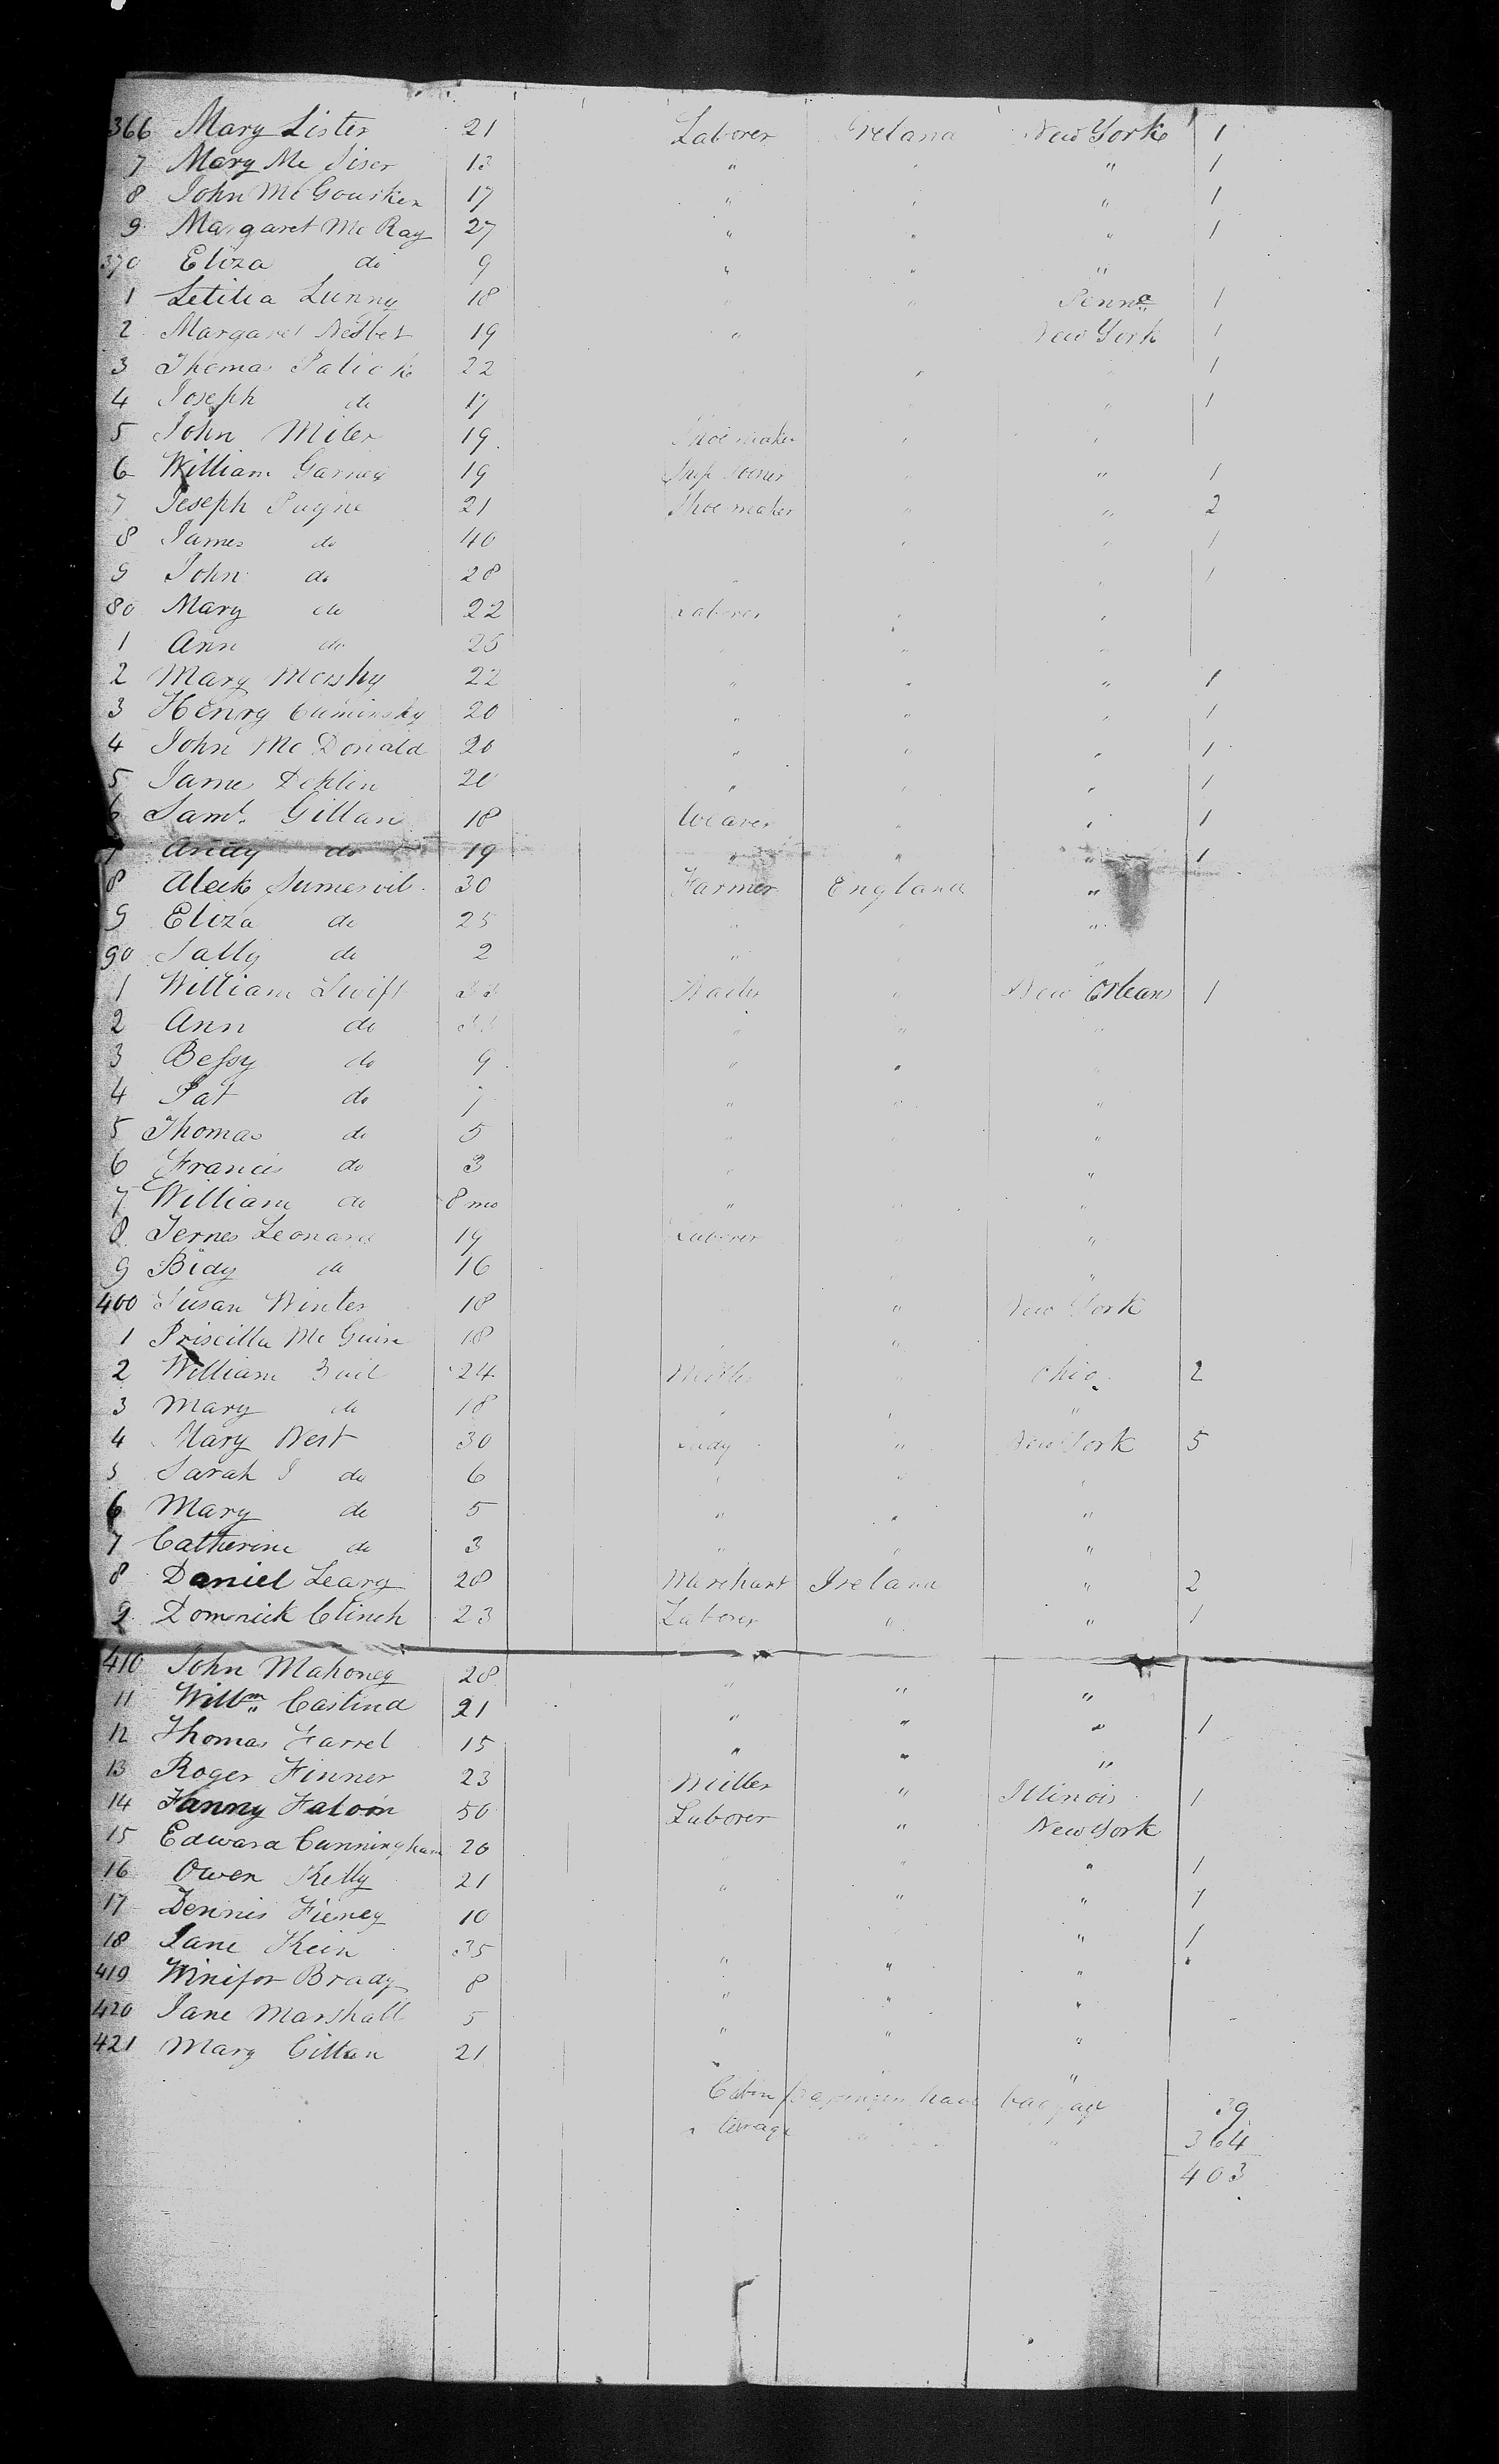 366 Mary Lister 21 Laborer Ireland New York 1
7 Mary Mc 13 " " " 1
8 John Mc Gousken 17 " " " 1
9 Margaret Mc Ray 27 " " " 1
370 Eliza do 9 " " "
1 Letitia Lunny 18 " " Penna 1
2 Margaret Nesbet 19 " New York 1
3 Thomas 22 " " 1
4 Joseph do 17 " 1
5 John Miler 19 Shoe maker " "
6 William Garney 19 " " 1
7 Joseph Payne 21 Shoe maker " " 2
8 James do 40 " " 1
9 John do 28 " " 1
80 Mary do 22 Laborer " "
1 Ann do 25 " " "
2 Mary 22 " " " 1
3 Henry Cuminsky 20 " " " 1
4 John Mc Donald 20 " " " 1
5 James 20 " " " 1
6 Saml. Gillan 18 Weaver " " 1
7 Andy do 19 " " " 1
8 Aleck Sumervil 30 Farmer England "
9 Eliza do 25 " " "
90 Sally do 2 " "
1 William Swift " New Orleans 1
2 Ann do " " "
3 Bessy do 9 " " "
4 Pat do 7 " " "
5 Thomas do 5 " " "
6 Francis do 3 " "
7 William do 8 mo " " "
8 Leonard 19 Laborer " "
9 Bidy do 16 " "
400 Susan Winter 18 " New York
1 Priscilla Mc Guire 18 " "
2 William 24 " Ohio 2
3 Mary do 18 " " "
4 Mary West 30 Lady " New York 5
5 Sarah J do 6 " " "
6 Mary do 5 " " "
7 Catherine do 3 " " "
8 Daniel Leary 28 Merchant Ireland " 2
9 Dominick Clinch 23 Laborer " " 1
410 John Mahoney 28 " " "
11 Willm Castina 21 " " " 1
12 Thomas Farrel 15 " " "
13 Roger Finner 23 Miller " Illinois 1
14 Fanny Faloon 50 Laborer " New York
15 Edward Cunningham 20 " " " 1
16 Owen Kelly 21 " " " 1
17 Dennis Fieney 10 " 1
18 Jane Kein 35 " " "
419 Winifor Brady 8 " " "
420 Jane Marshall 5 " " "
421 Mary Gillan 21 " " "
Cabin passengers have baggage 39
" " " 364
403